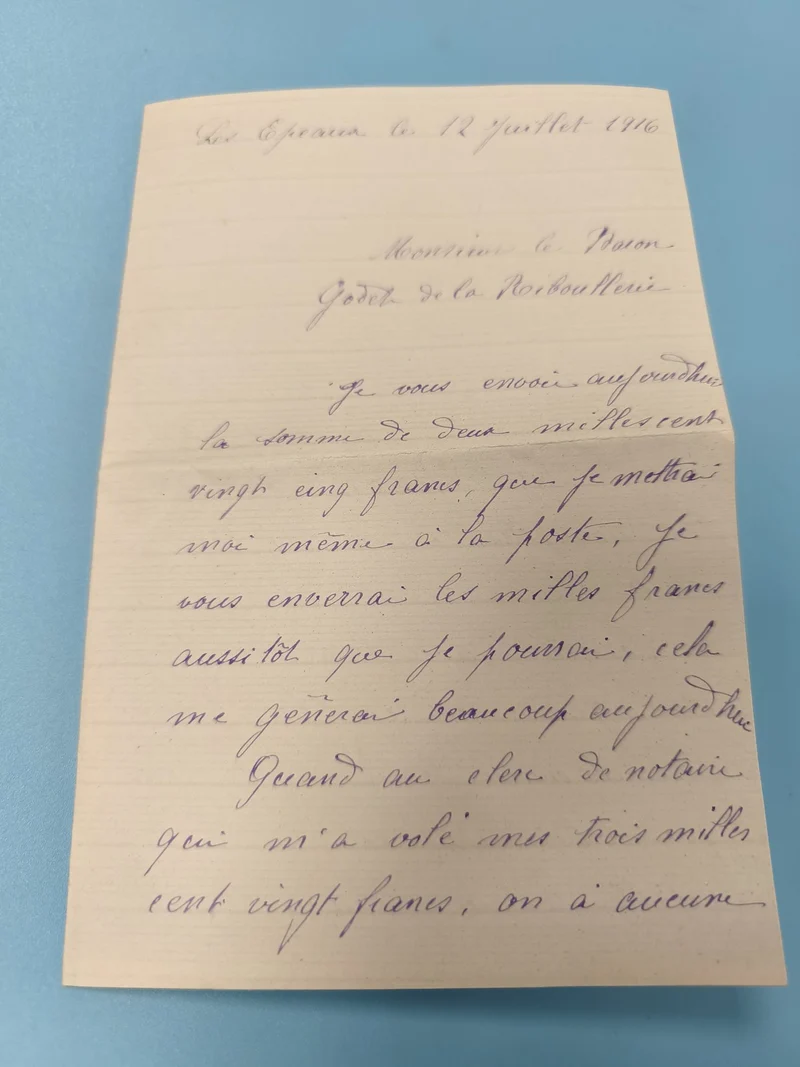 Les Epeaux le 12 Juillet 1916
Monsieur le Baron
Godet de la Riboullerie
Je vous envoie aujourdhui
la somme de deux milles cent
vingt cinq francs, que je mettrai
moi même à la poste, je
vous enverrai les milles francs
aussitôt que je pourrai, cela
me gênerai beaucoup aujourdhui
Quand au clerc de notaire
qui m'a volé mes trois milles
cent vingt francs, on à aucune